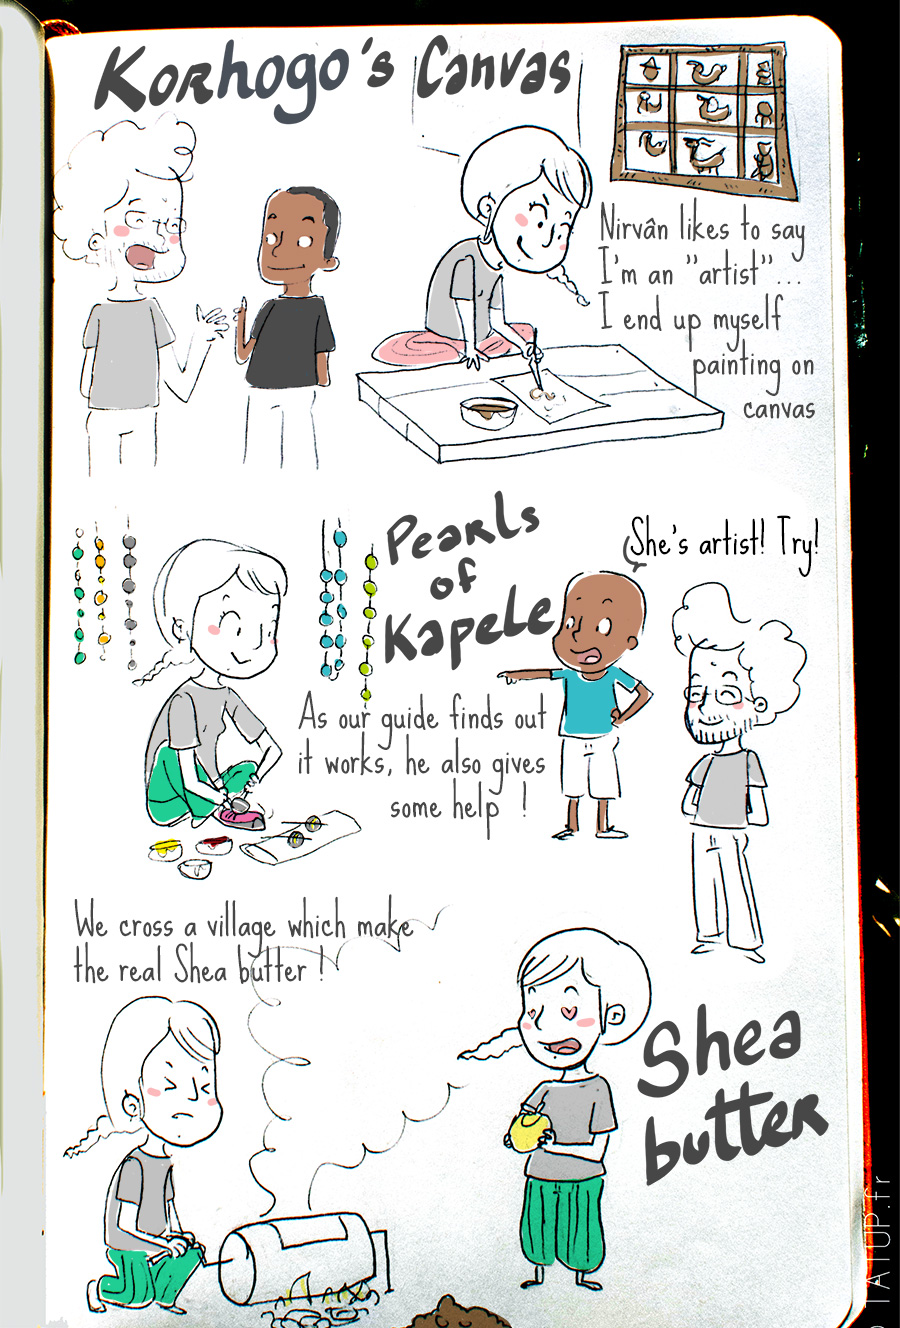 Korhogo's Canvas
Nirvân likes to say
I'm an "artist"...
I end up myself
painting on
canvas
Pearls
of
Kapele
She's artist! Try!
As our guide finds out
it works, he also gives
some help !
We cross a village which make
the real Shea butter !
Shea
butter
TATUP.fr